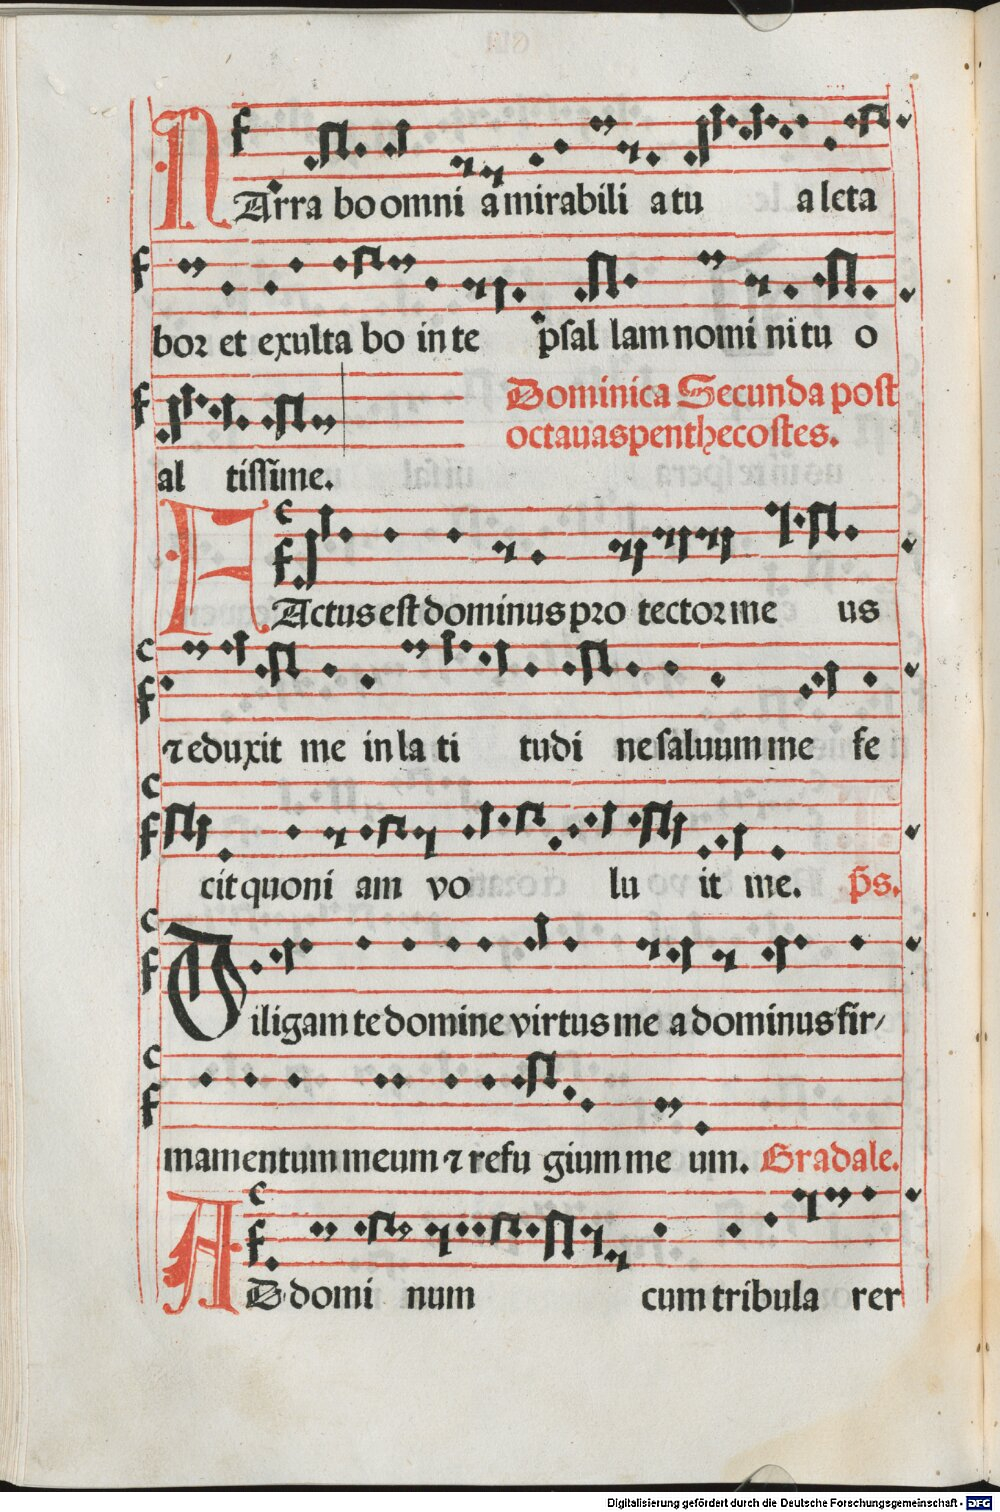 NArra bo omni a mirabili a tu a leta
bor et exulta bo in te psal lam nomi ni tu o
Dominica Secunda post
octauas penthecostes.
al tissime.
FActus est dominus pro tector me us
⁊ eduxit me in la ti tudi ne saluum me fe
cit quoni am vo lu it me. p̄s.
Diligam te domine virtus me a dominus fir/
mamentum meum ⁊ refu gium me um. Gradale.
AD domi num cum tribula rer
Digitalisierung gefördert durch die Deutsche Forschungsgemeinschaft - DFG